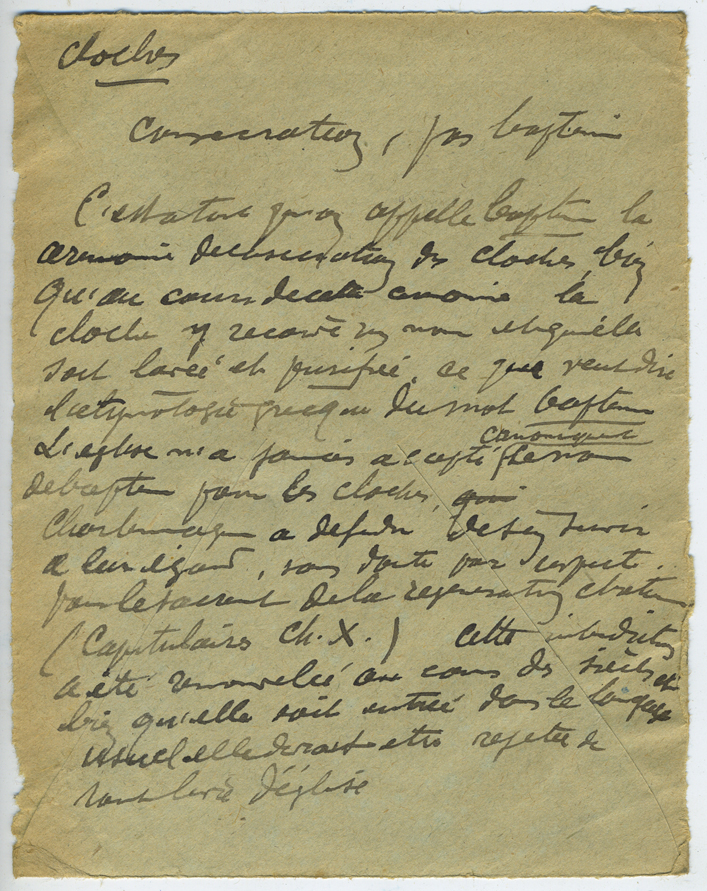 cloches
consecration, pas bapteme
C'est a tort qu'on appelle bapteme la
ceremonie de consecration des cloches, bien
qu'au cours de cette ceremonie la
cloche y recoive un nom et qu'elle
soit lavée et purifiée, ce que veut dire
l'etymologie grecque du mot bapteme
L'eglise n'a jamais accepté canoniquement le nom
de bapteme pour les cloches,
Charlemagne a defendu de s'en servir
a leur égard, sans doute par respect
pour le sacrement de la regeneration
(Capitulaires Ch. X.) cette interdiction
a été renouvelée au cours des siècles et
bien qu'elle soit entrée dans le langage
usuel elle devrait etre rejetée de
d'église